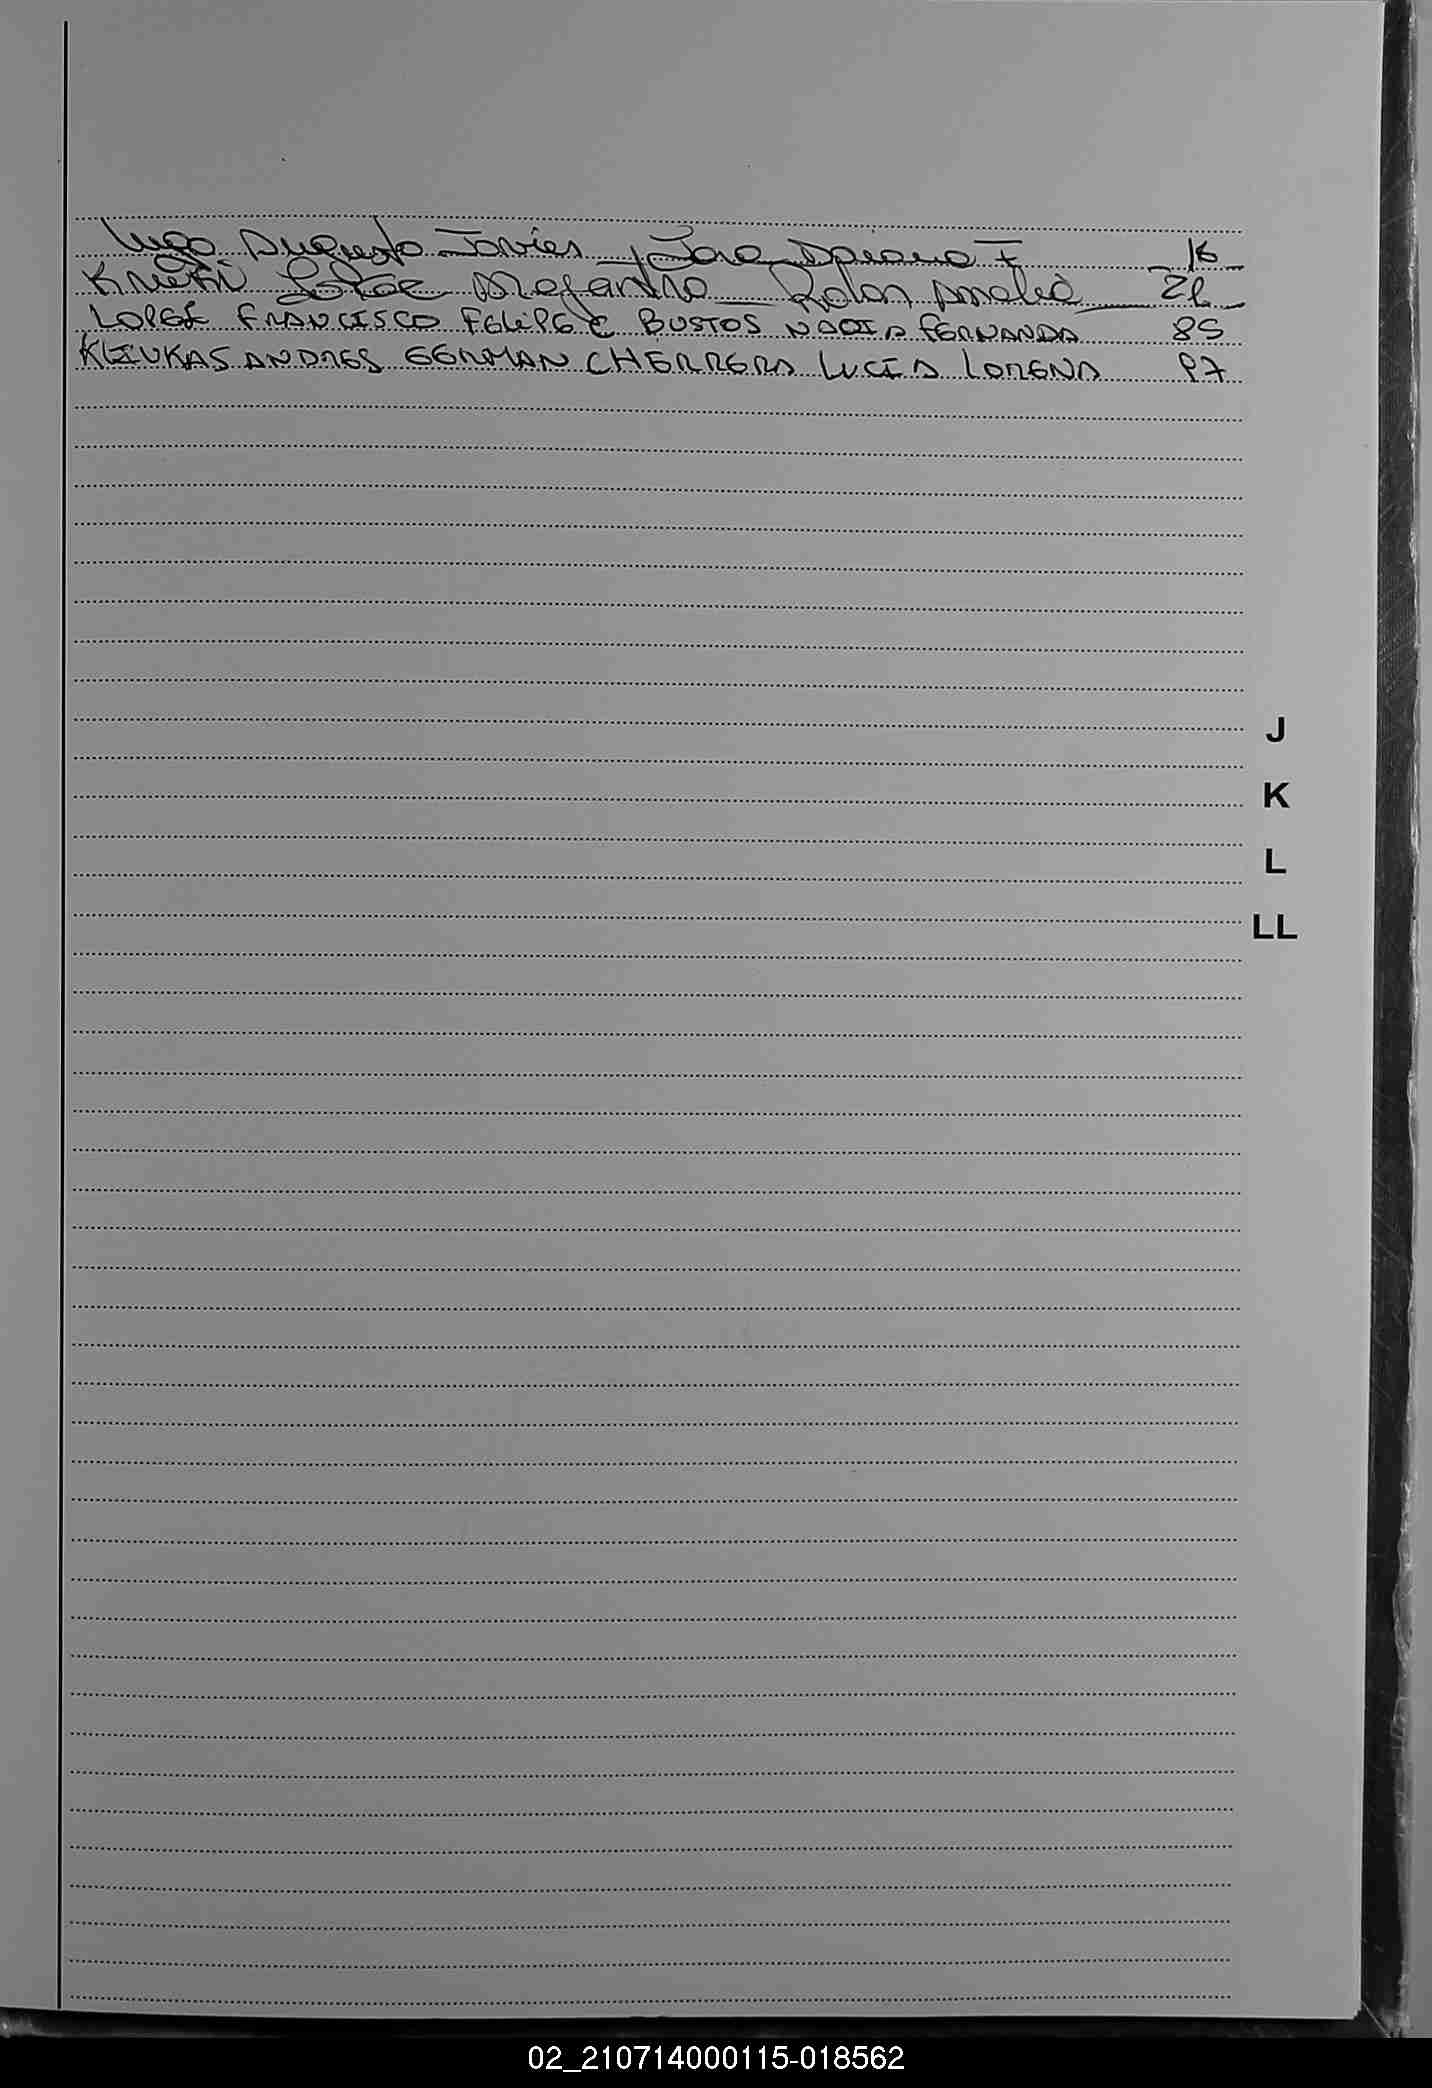 Lugo Augusto Javier y Jara Adriana F 16
Jorge Alejandro Rolon Amalia
LOPEZ FRANCISCO FELIPE C BUSTOS NADIA FERNANDA 85
KLIUKAS ANDRES GERMAN C HERRERA LUCIA LORENA 97
J
K
L
LL
02_210714000115-018562